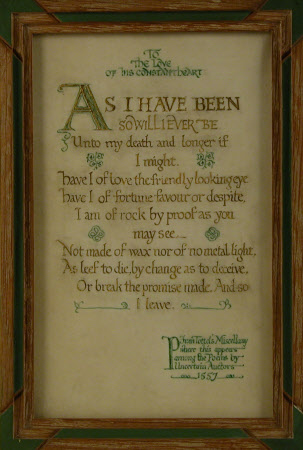 To
The Love
of his constant heart
AS I HAVE BEEN
SO WILL I EVER BE
Unto my death and longer if
I might.
Have I of love the friendly looking eye
Have I of fortune favour or despite,
I am of rock by proof as you
may see
Not made of wax nor of no metal light,
As leef to die, by change as to deceive,
Or break the promise made. And so
I leave.
From Tottel's Miscellany
where this appears
among the Poems by
Uncertain Authors
1557